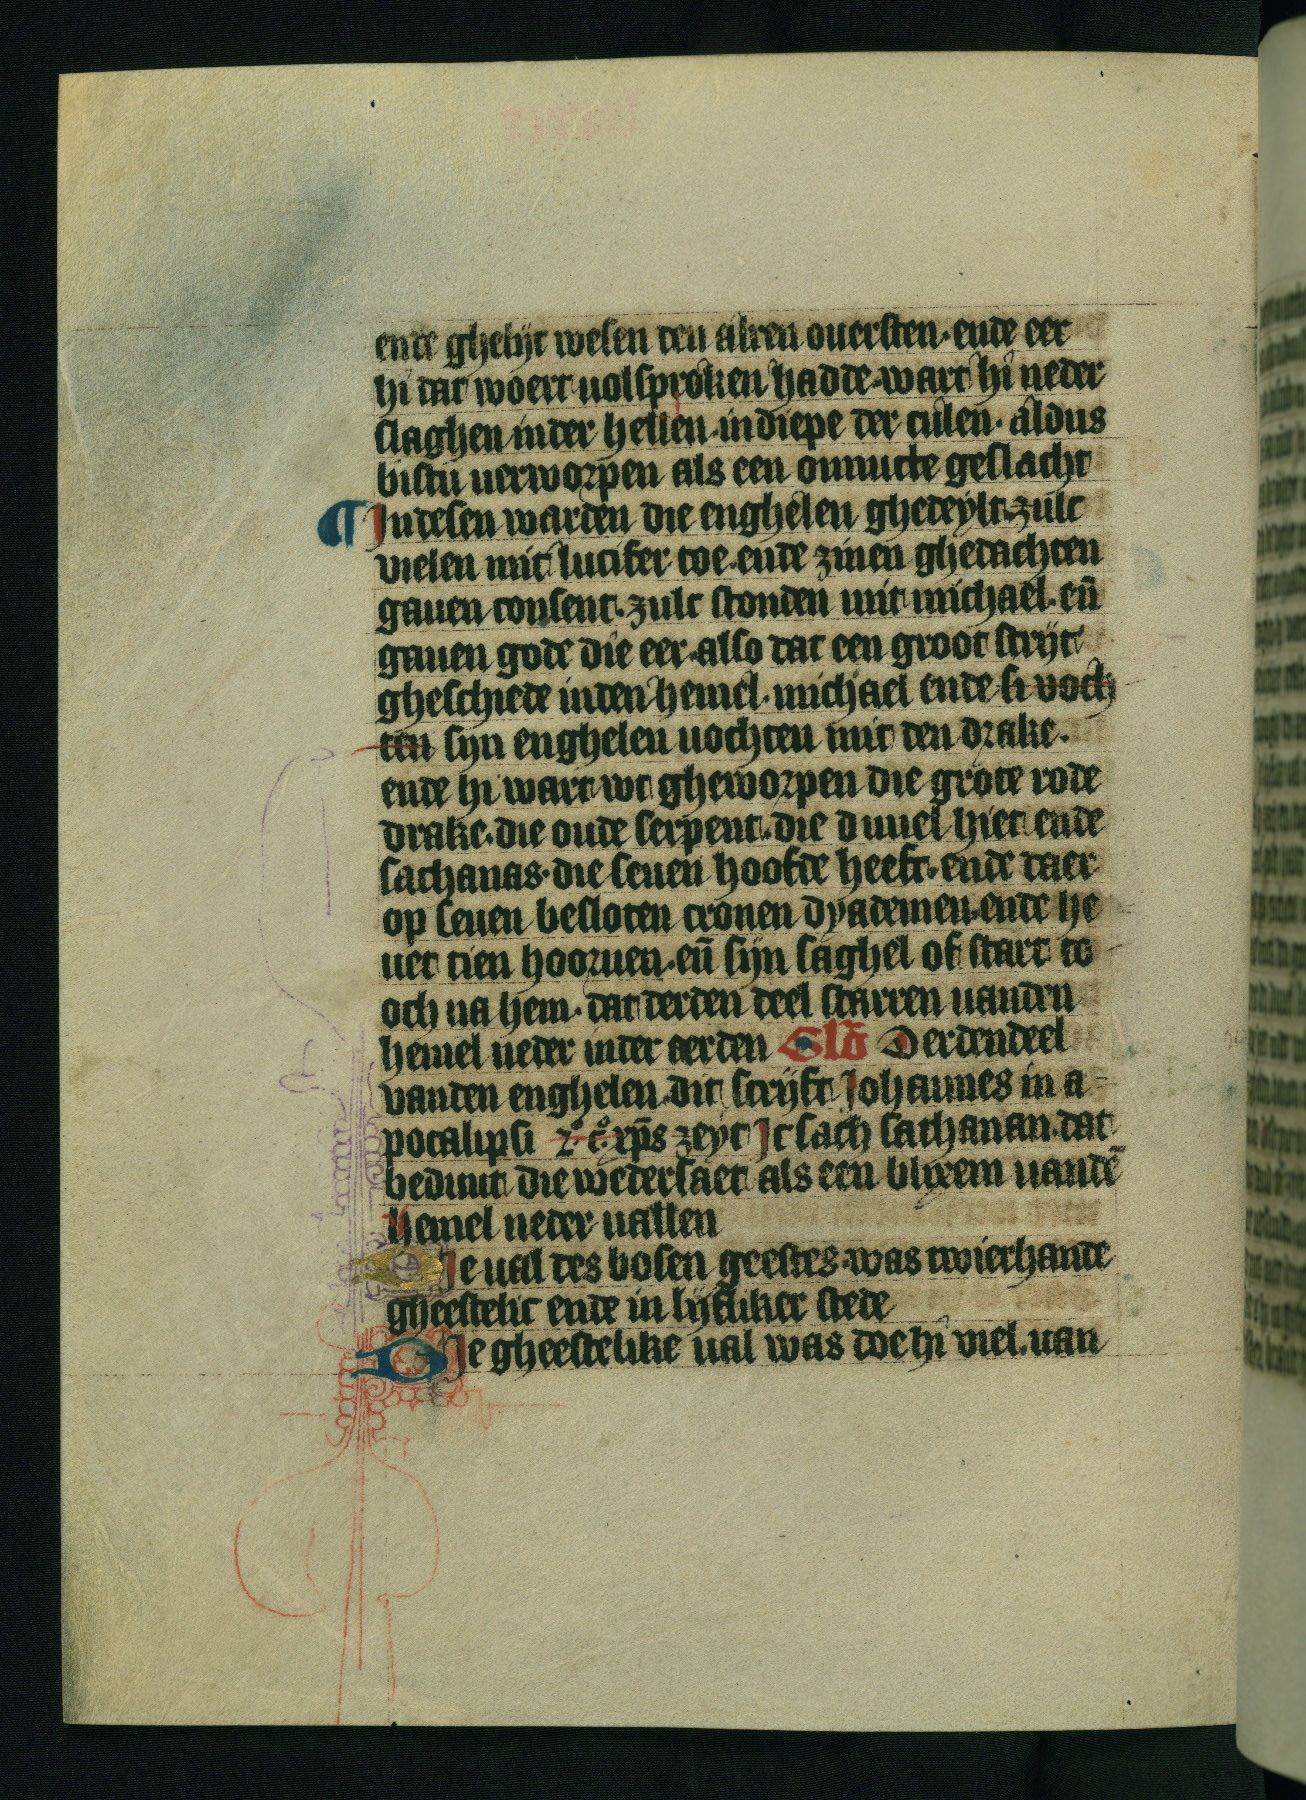 ende ghelijc wesen den alren ouersten·ende eer
hi dat woert uolsproken hadde·wart hi neder
slaghen inder hellen·indiepe der culen·aldus
bistu uerworpen als een onnutte geslacht
¶ Indesen warden die enghelen ghedeylt·zulc
vielen mit lucifer toe·ende zinen ghedachten
gauen consent·zulc stonden mit michael·eñ
gauen gode die eer·also dat een groot strijt
gheschiede inden hemel·michael ende si voch
ten sijn enghelen uochten mit den drake·
ende hi wart wt gheworpen die grote rode
drake·die oude serpent·die duuel hiet ende
sathanas·die seuen hoofde heeft·ende daer
op seuen besloten cronen dyademen·ende he
uet tien hoornen·eñ sijn saghel of start to
och na hem·dat derden deel starren uanden
hemel neder inder eerden Glõ Derdendeel
vanden enghelen·dit scrijft Johannes in a
pocalipsi xp̄s zeyt Ic sach sathanan·dat
beduut die wedersaet als een blixem uandē
hemel neder uallen
Die ual des bosen geestes·was twierhande
gheestelic ende in lijfliker stede
Die gheestelike ual was doe hi viel·uan